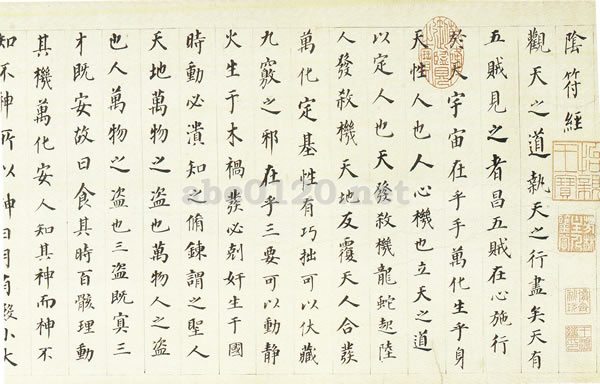 陰符經
觀天之道執天之行盡矣天有
五賊見之者昌五賊在心施行
於天宇宙在乎手萬化生乎身
天性人也人心機也立天之道
以定人也天發殺機龍蛇起陸
人發殺機天地反覆天人合發
萬化定基性有巧拙可以伏藏
九竅之邪在乎三要可以動靜
火生于木禍發必剋奸生于國
時動必潰知之脩鍊謂之聖人
天地萬物之盜也萬物人之盜
也人萬物之盜也三盜既冥三
才既安故曰食其時百骸理動
其機萬化安人知其神而神不
知不神所以神日月有數小大
abc0120.net